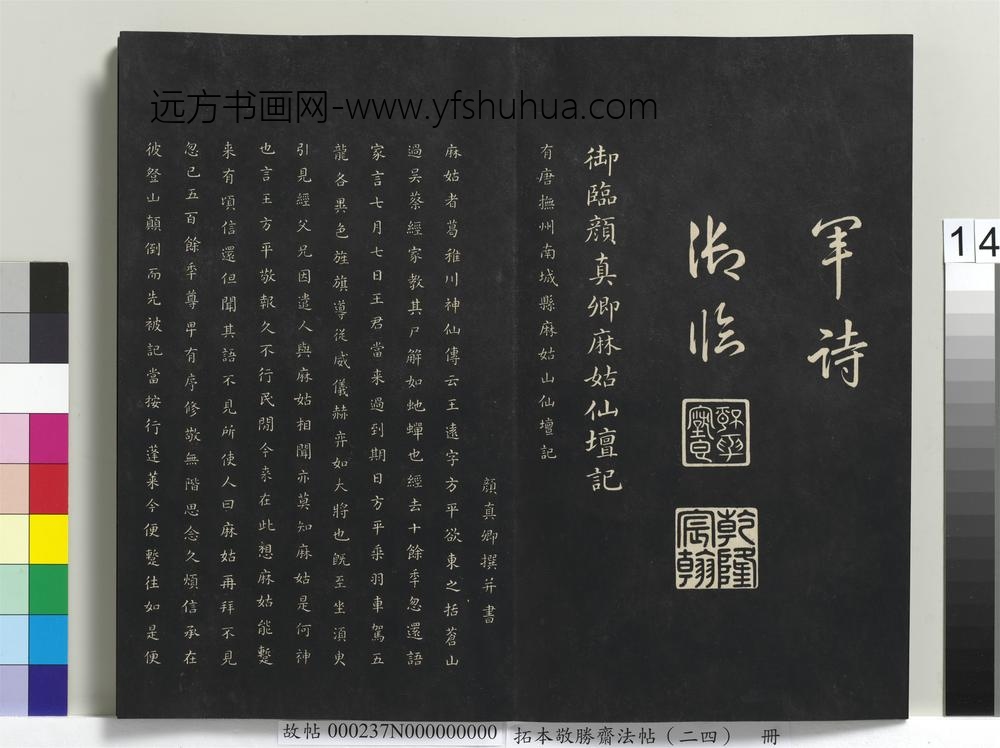 远方书画网-www.yfshuhua.com
軍詩
御臨
乾隆宸翰
御臨顔真卿麻姑仙壇記
有唐撫州南城縣麻姑山仙壇記
顔真卿撰并書
麻姑者葛稚川神仙傳云王遠字方平欲東之括蒼山
過吳蔡經家教其尸解如虵蟬也經去十餘年忽還語
家言七月七日王君當来過到期日方平乘羽車駕五
龍各異色旌旗導從威儀赫弈如大將也旣至坐須臾
引見經父兄因遣人與麻姑相聞亦莫知麻姑是何神
也言王方平敬報久不行民間今来在此想麻姑能蹔
来有頃信還但聞其語不見所使人曰麻姑再拜不見
忽已五百餘年尊卑有序修敬無階思念久煩信承在
彼登山顛倒而先被記當按行蓬萊今便蹔往如是便
14
故帖 000237N000000000 拓本敬勝齋法帖（二四） 冊